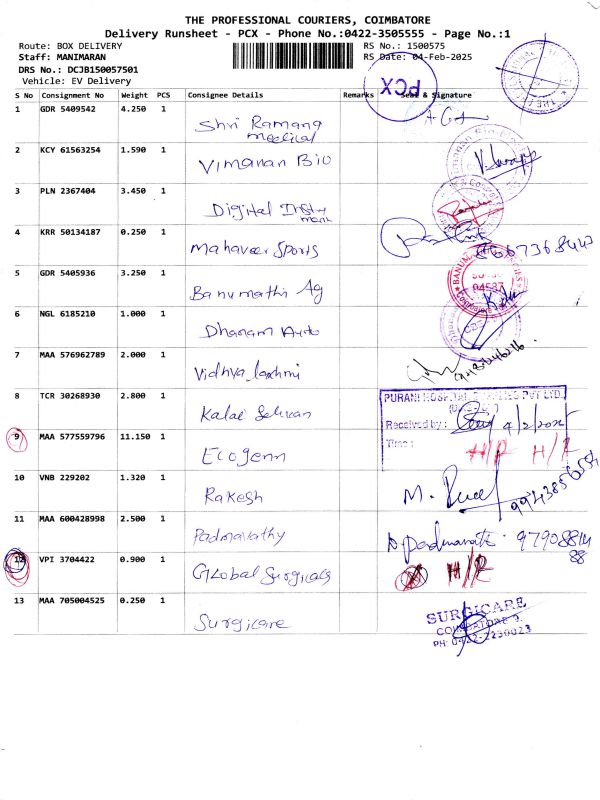 THE PROFESSIONAL COURIERS, COIMBATORE
Delivery Runsheet - PCX - Phone No.:0422-3505555 - Page No.:1
Route: BOX DELIVERY
RS No.: 1500575
Staff: MANIMARAN
RS Date: 04-Feb-2025
DRS No.: DCJB150057501
Vehicle: EV Delivery
PCX
S No Consignment No Weight PCS Consignee Details Remarks Seal & Signature
1 GDR 5409542 4.250 1
Shri Ramana
medical
2 KCY 61563254 1.590 1
Vimanan Bio
3 PLN 2367404 3.450 1
Digital
4 KRR 50134187 0.250 1
Mahaveer Sports
5 GDR 5405936 3.250 1
Banumathi Ag
6 NGL 6185210 1.000 1
Dhanam Auto
7 MAA 576962789 2.000 1
Vidhya laxhmi
8 TCR 30268930 2.800 1
Kalai Selvan
PURANI HOSPITAL SUPPLIES PVT LTD.
Received by : 4/2/2025
Time :
H/R H/R
9 MAA 577559796 11.150 1
Ecogenn
10 VNB 229202 1.320 1
Rakesh
M.
9943856554
11 MAA 600428998 2.500 1
Padmavathy
12 VPI 3704422 0.900 1
Global Surgicals
H/R
13 MAA 705004525 0.250 1
Surgicare
SURGICARE
COIMBATORE
PH: 0422-2230023